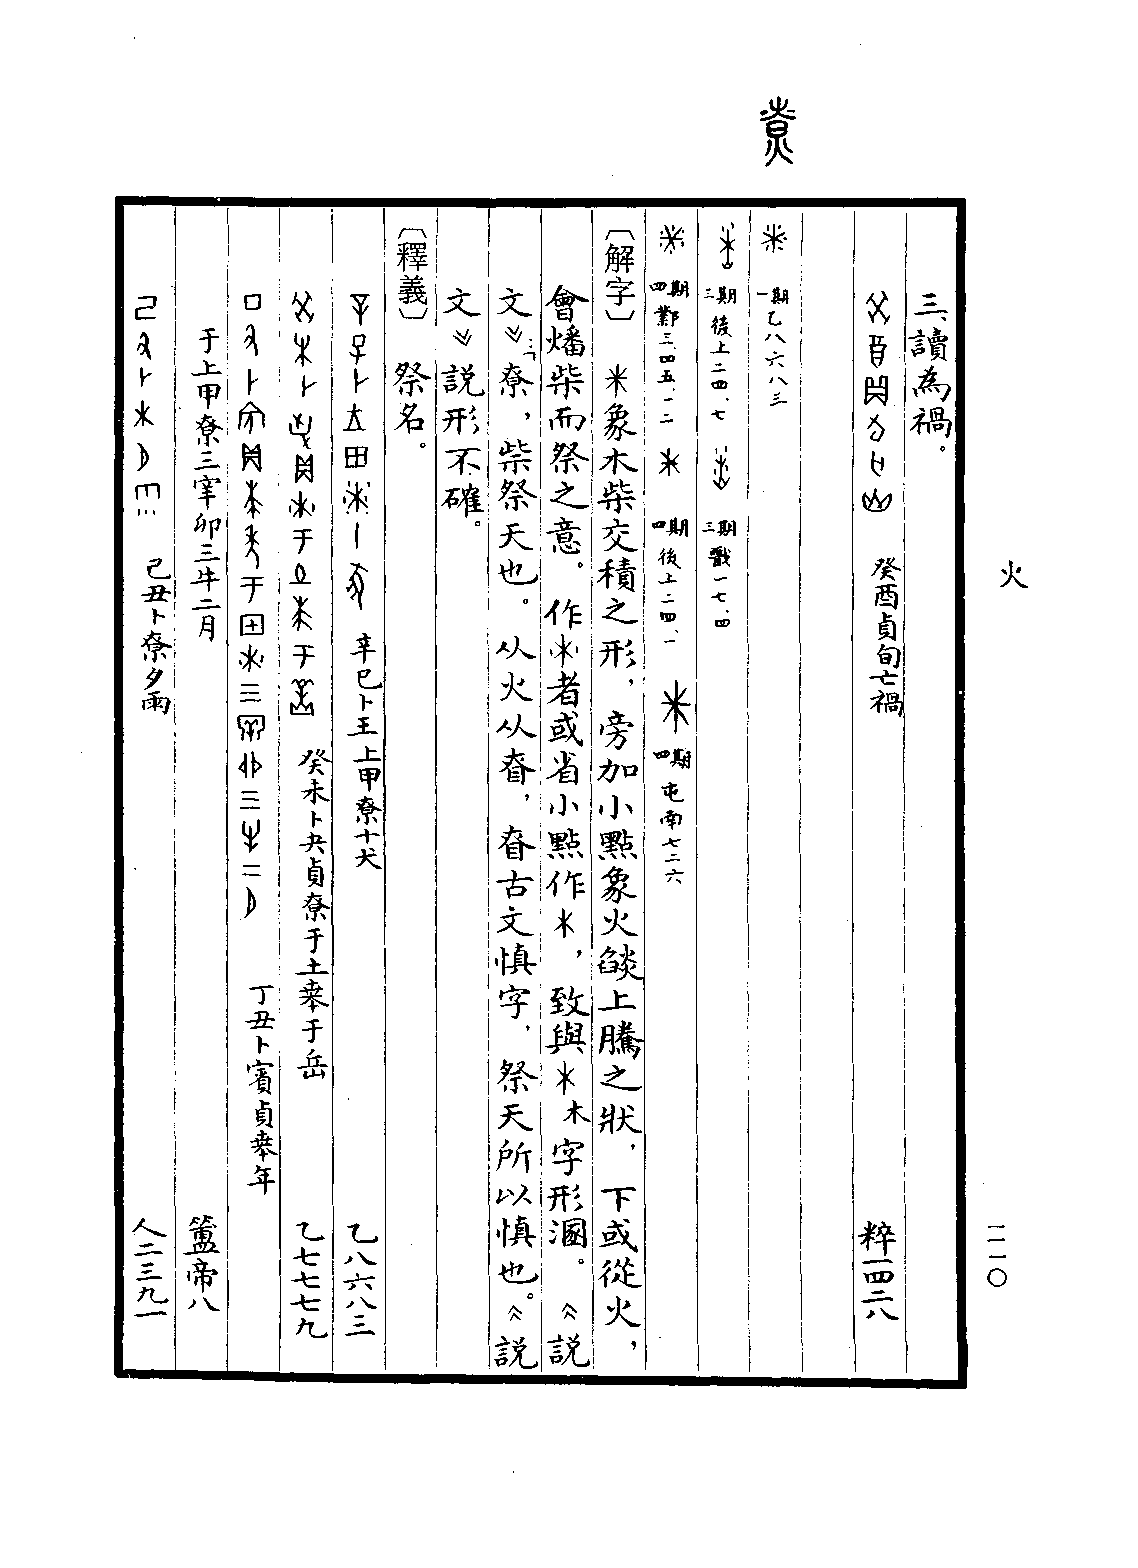 尞
火
一一〇
三、讀為禍。
癸酉貞旬亡禍 粹一四二八
一期 乙八六八三
三期 後上二四、七 三期 戬一七、四
四期 鄴三、四五、一二 四期 後上二四、一 四期 屯南七二六
〔解字〕 象木柴交積之形，旁加小點象火燄上騰之狀，下或從火，
會燔柴而祭之意。作者或省小點作，致與木字形溷。《說
文》：「尞，柴祭天也。从火从昚，昚古文慎字，祭天所以慎也。」《說
文》說形不確。
〔釋義〕 祭名。
辛巳卜王上甲尞十犬 乙八六八三
癸未卜㱿貞尞于土𠦪于岳 乙七七七九
丁丑卜賓貞𠦪年
于上甲尞三宰卯三牛二月 簠帝八
己丑卜尞夕雨 人二三九一